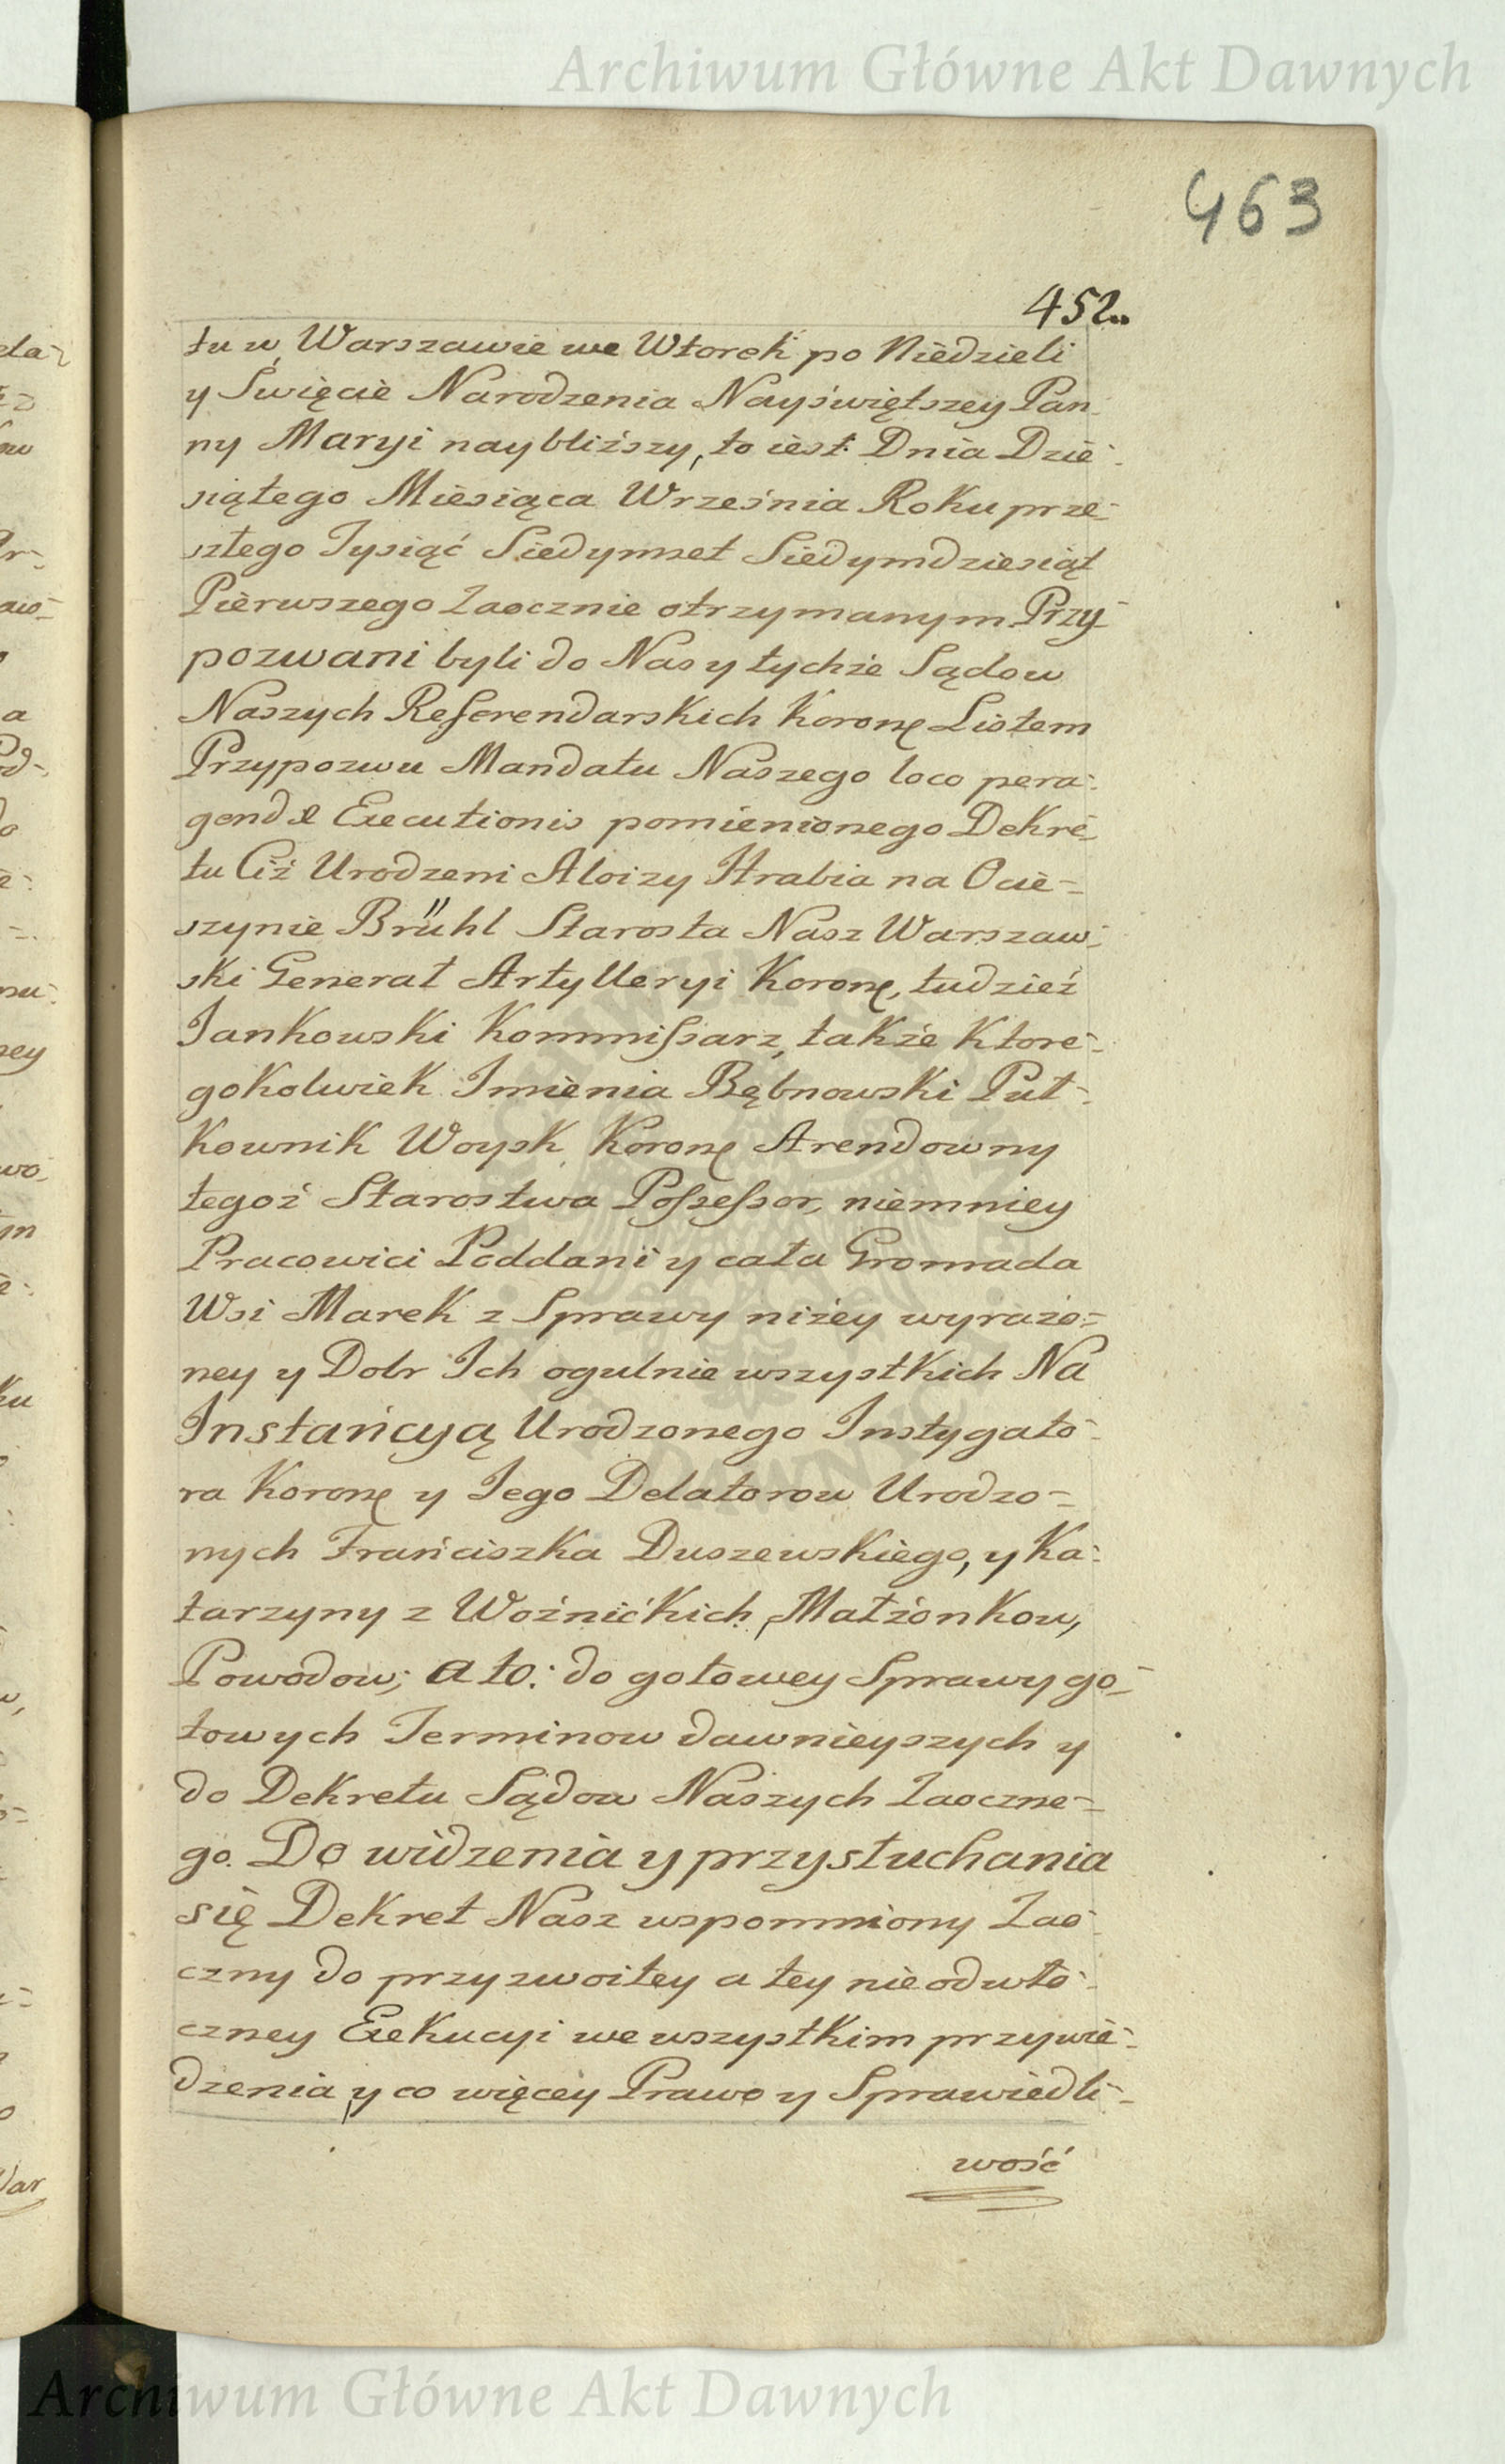 Archiwum Główne Akt Dawnych
463
452.
tu w Warszawie we Wtorek po Niedzieli
y Święcie Narodzenia Nayświętszey Pan-
ny Maryi naybliższy, to iest: Dnia Dzie-
siątego Miesiąca Września Roku prze-
szłego Tysiąć Siedymset Siedymdziesiąt
Pierwszego Zaocznie otrzymanym. Przy-
pozwani byli do Nas y tychże Sądow
Naszych Referendarskich Koronę Listem
Przypozwu Mandatu Naszego loco pera-
gendæ Executionis pomienionego Dekre-
tu Ciż Urodzeni Aloizy Hrabia na Ocie-
szynie Brühl Starosta Nasz Warszaw-
ski Generał Artylleryi Koronę, tudzież
Jankowski Kommissarz, także ktore-
gokolwiek Imienia Bębnowski Puł-
kownik Woysk Koronę Arendowny
tegoż Starostwa Possessor, niemniey
Pracowici Poddani y cała Gromada
Wsi Marek z Sprawy niżey wyrażo-
ney y Dobr Ich ogulnie wszystkich Na
Instańcyą Urodzonego Instygato-
ra Koronę y Jego Delatorow Urodzo-
nych Frańciszka Duszewskiego, y Ka-
tarzyny z Woźnićkich, Małżonkow,
Powodow; a to: do gotowey Sprawy go-
towych Terminow dawnieyszych y
do Dekretu Sądow Naszych Zaoczne-
go. Do widzenia y przysłuchania
się Dekret Nasz wspomniony Zao-
czny do przyzwoitey a tey nieodwło-
czney Exekucyi we wszystkim przywie-
dzenia, y co więcey Prawo y Sprawiedli-
wość
Archiwum Główne Akt Dawnych